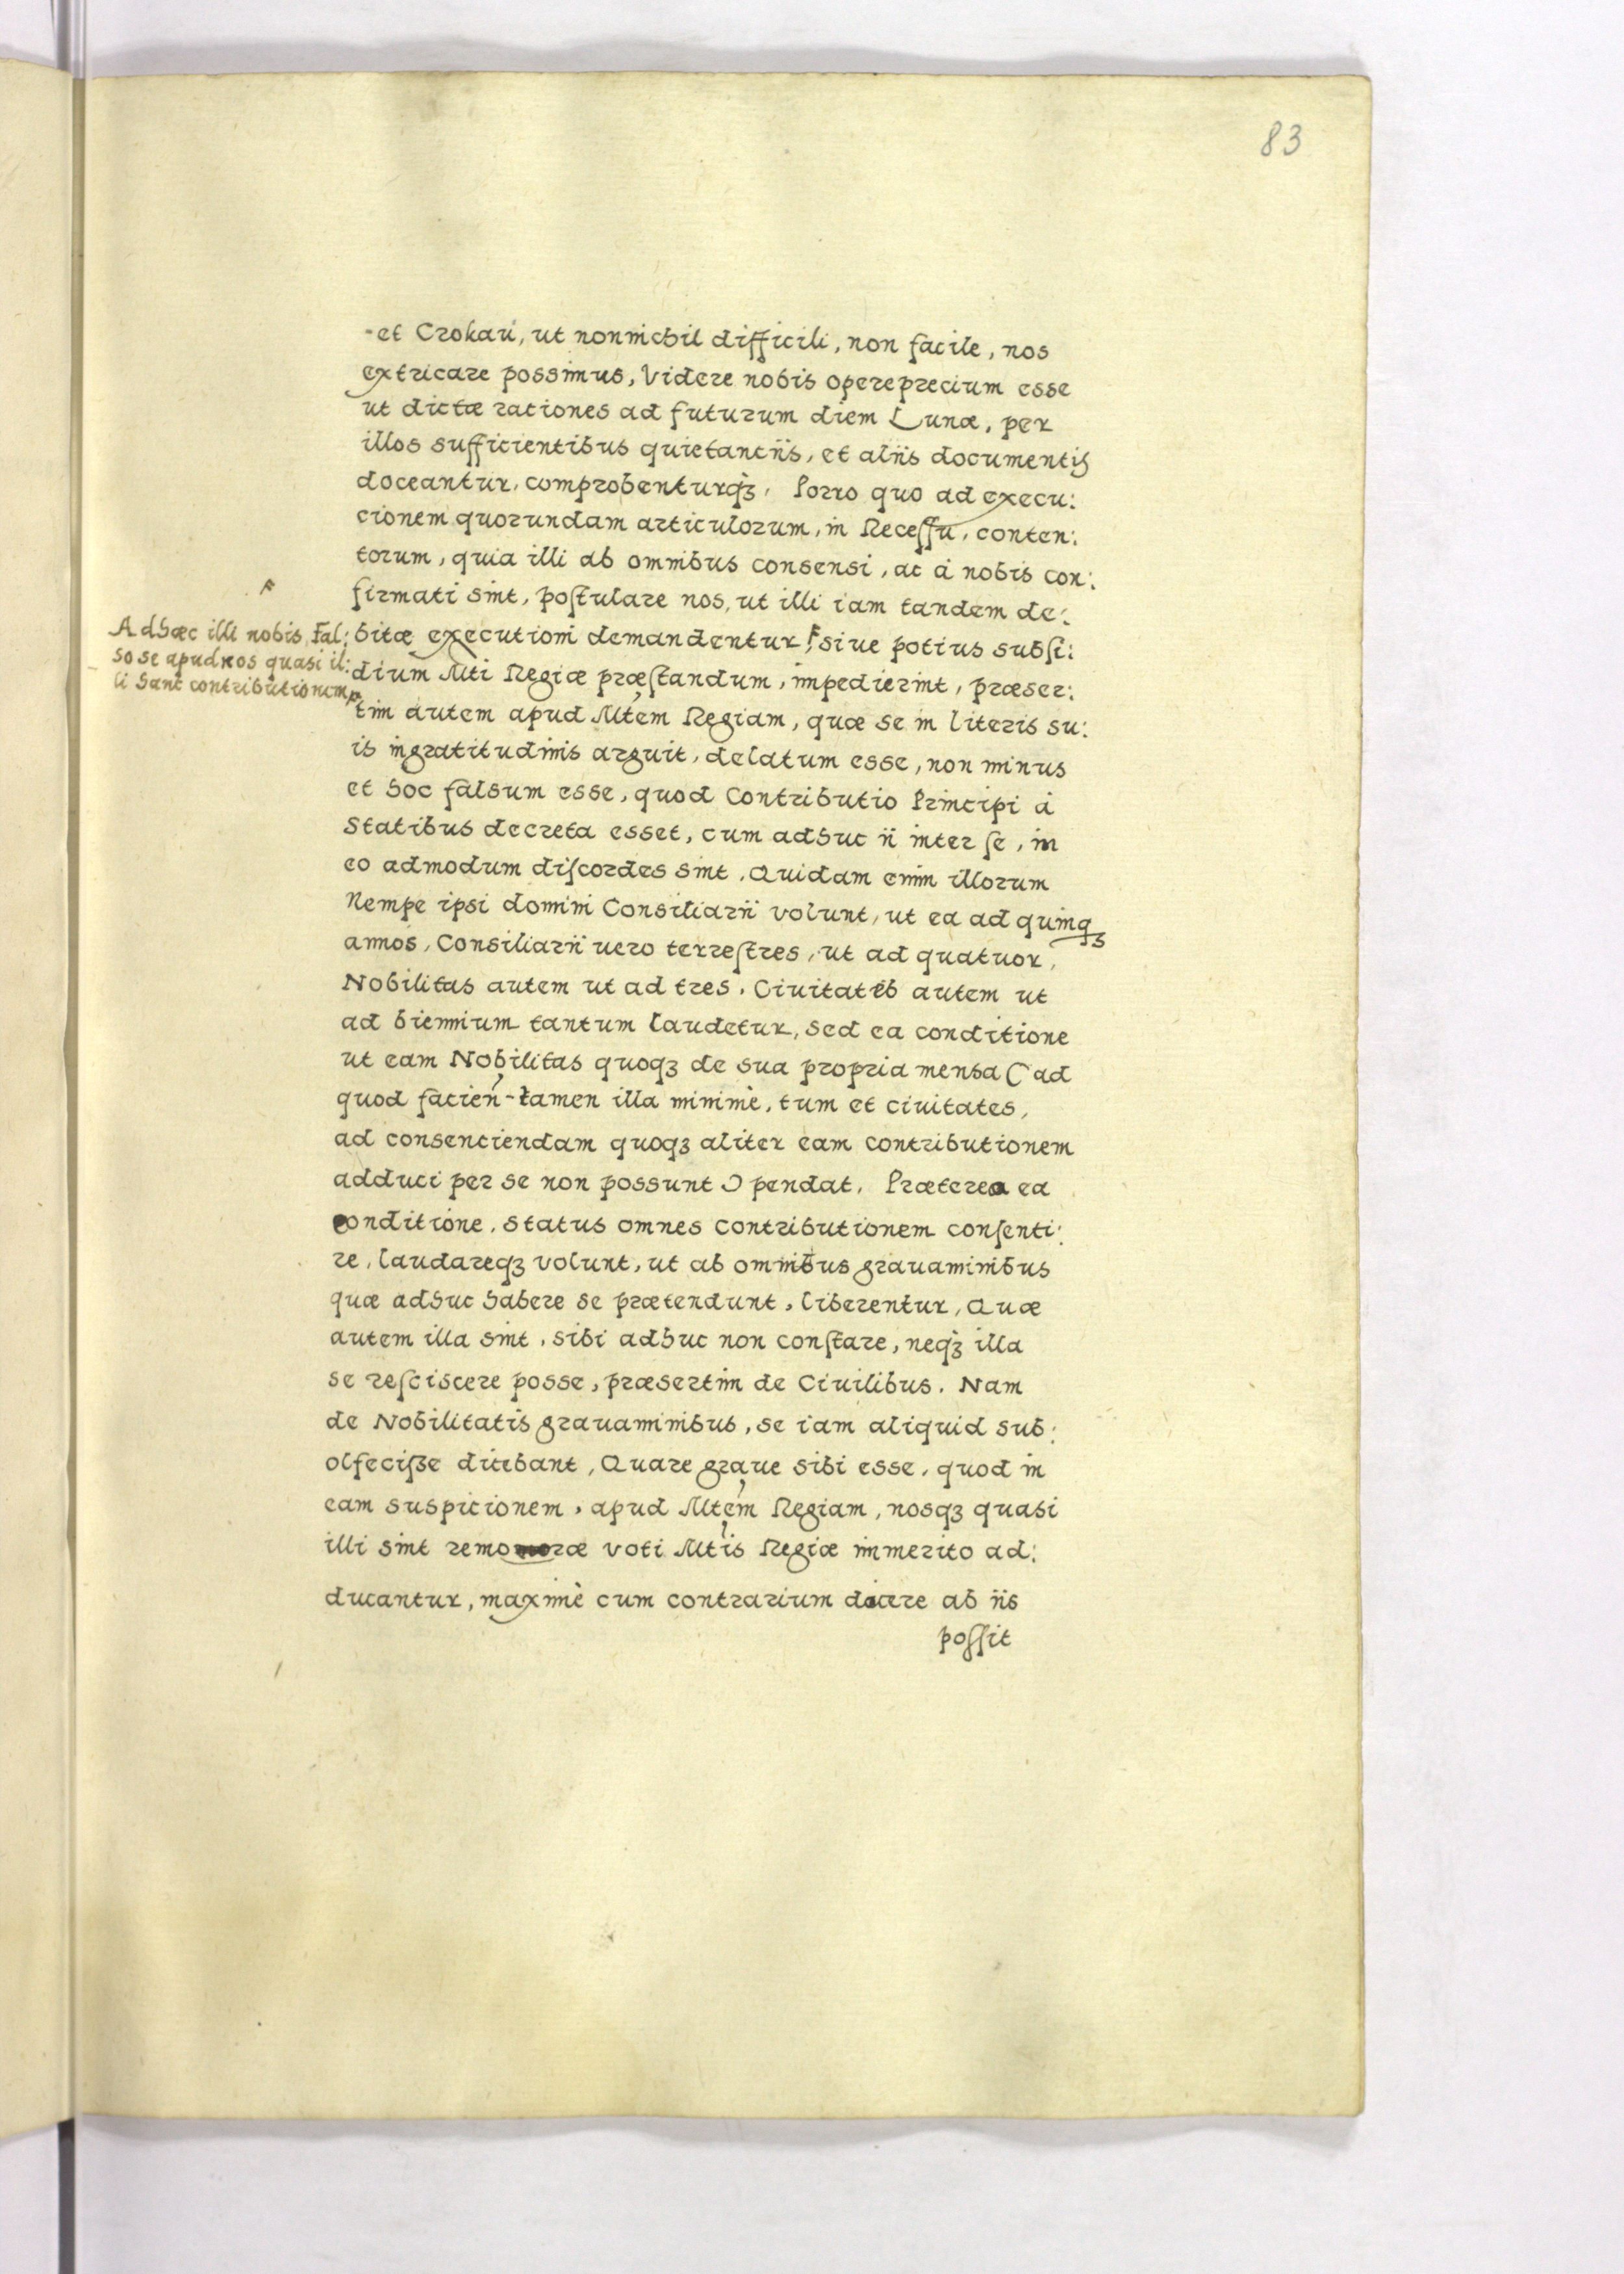 83
-et Crokaú, ut nonnichil difficili, non facile, nos
extricare possimus, Videre nobis opereprecium esse
ut dictæ rationes ad futurum diem Lunæ, per
illos sufficientibus quietanciis, et aliis documentis
doceantur, comprobenturqȝ, Porro quo ad execu:
cionem quorundam articulorum, in Receſſu, conten:
torum, quia illi ab omnibus consensi, ac à nobis con:
firmati sint, poſtulare nos, ut illi iam tandem de:
bitæ executioni demandentur, ⸢sive potius subſi:
Adhæc illi nobis, fal:
so se apud nos quasi il:
li hanc contributionem,
dium Mti Regiæ præſtandum, impedierint, præser:
tim autem apud Mtem Regiam, quæ se in literis su:
is ingratitudinis arguit, delatum esse, non minus
et hoc falsum esse, quod Contributio Principi à
Statibus decreta esset, cum adhuc ii inter ſe, in
eo admodum diſcordes sint. Quidam enim illorum
Nempe ipsi domini Consiliarii volunt, ut ea ad quinqȝ
annos, Consiliarii uero terreſtres, ut ad quatuor,
Nobilitas autem ut ad tres. Ciuitates autem ut
ad biennium tantum laudetur, sed ea conditione
ut eam Nobilitas quoqȝ de sua propria mensa (ad
quod facien-tamen illa minimè, tum et ciuitates,
ad consenciendam quoqȝ aliter eam contributionem
adduci per se non possunt) pendat. Præterea ea
conditione, status omnes contributionem conſenti:
re, laudareqȝ volunt, ut ab omnibus grauaminibus
quæ adhuc habere se prætendunt, liberentur, Quæ
autem illa sint, sibi adhuc non conſtare, neqȝ illa
se reſciscere posse, præsertim de Ciuilibus. Nam
de Nobilitatis grauaminibus, se iam aliquid sub:
olfeciße dicebant, Quare graue sibi esse, quod in
eam suspicionem, apud Mtem Regiam, nosqȝ quasi
illi sint remoræ voti Mtis Regiæ immerito ad:
ducantur, maximè cum contrarium docere ab iis
poſſit